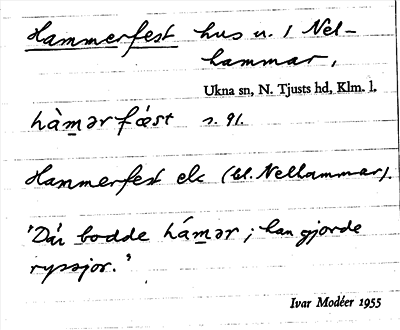 Hammerfest hus u. / Nel-
hammar,
Ukna sn, N. Tjusts hd, Klm. l.
hàm̲ərfǽst s. 91.
Hammerfest ek (bl. Nelhammar).
'Där bodde hám̲ər; han gjorde
ryssjor.'
Ivar Modéer 1955